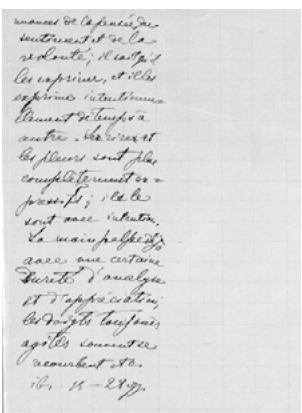 nuances de la pensée, du
sentiment et de la
volonté; il sait qu'il
les exprime, et il les
exprime intentionne
llement de temps à
autre. Les rires et
les pleurs sont plus
complètement ex=
pressifs; ils le
sont avec intention.
La main palpe déjà
avec une certaine
sureté d'analyse
et d'appréciation;
les doigts toujours
agités souvent se
recourbent etc.
ib.